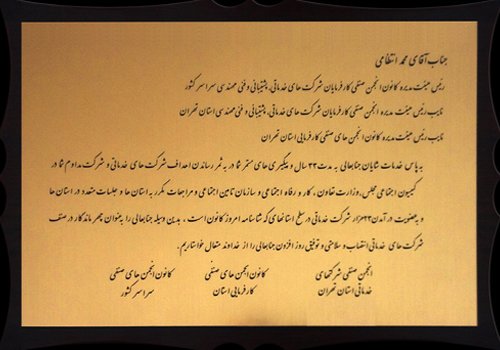 جناب آقای محمد انتظامی
رئیس هیئت مدیره کانون انجمن صنفی کارفرمایان شرکت های خدماتی، پشتیبانی و فنی مهندسی سراسر کشور
نایب رئیس هیئت مدیره انجمن صنفی کارفرمایان شرکت های خدماتی، پشتیبانی و فنی مهندسی استان تهران
نایب رئیس هیئت مدیره کانون انجمن های صنفی کارفرمایی استان تهران
به پاس خدمات شایان جنابعالی به مدت ۲۳ سال و پیگیری های مستمر شما در به ثمر رساندن اهداف شرکت های خدماتی و شرکت مداوم شما در
کمیسیون اجتماعی مجلس، وزارت تعاون، کار و رفاه اجتماعی و سازمان تامین اجتماعی و مراجعات مکرر به استان ها و جلسات متعدد در استان ها
و به عضویت در آمدن ۲۳هزار شرکت خدماتی در سطح استانهای که شناسنامه امروز کانون است، بدین وسیله جنابعالی را بعنوان چهره ماندگار در صنف
شرکت های خدماتی انتصاب و سلامتی و توفیق روز افزون جنابعالی را از خداوند متعال خواستاریم.
انجمن صنفی شرکتهای خدماتی استان تهران
کانون انجمن های صنفی کارفرمایی استان
کانون انجمن های صنفی سراسر کشور